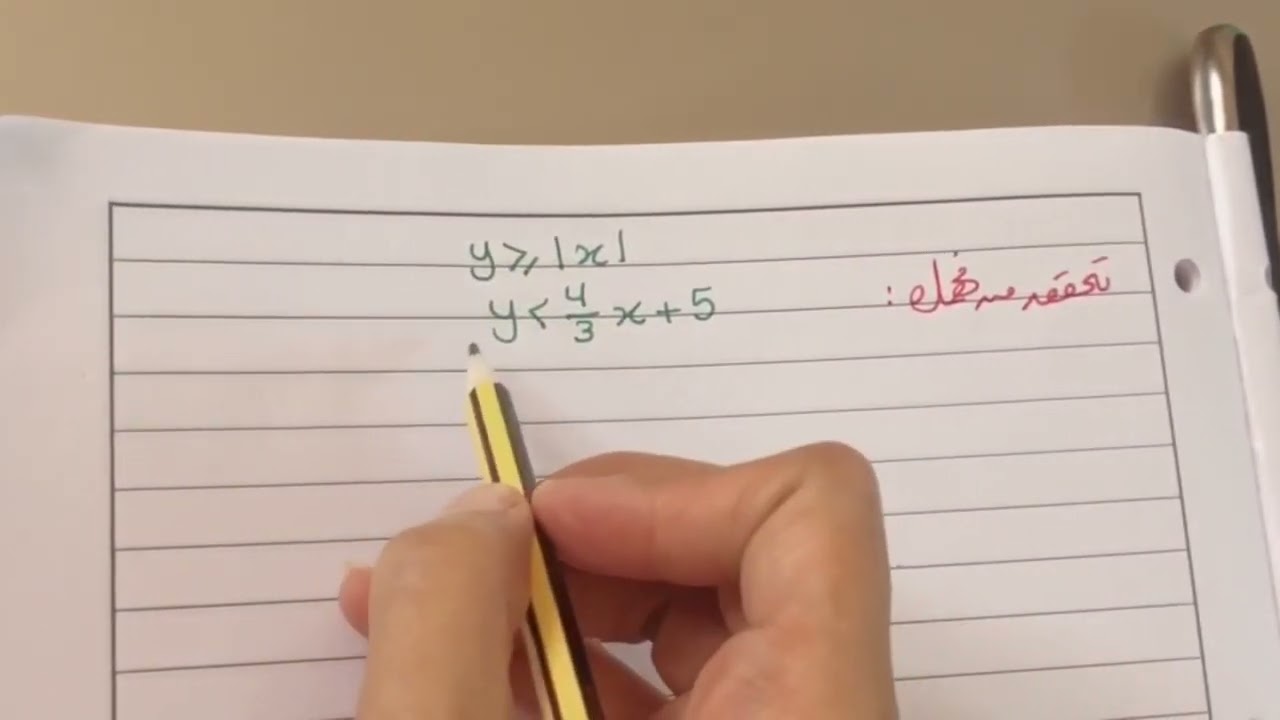 y ≥ |x|
y < 4/3 x + 5
تحقق من فهمك :